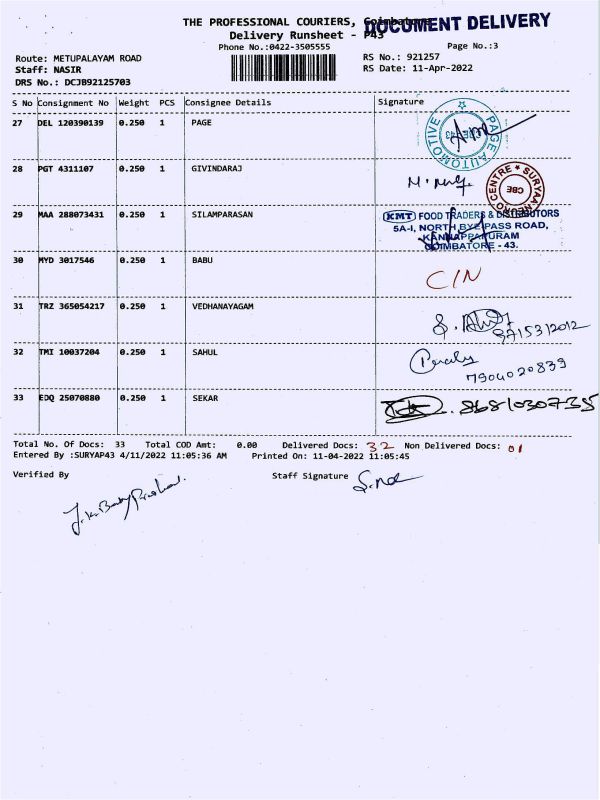 THE PROFESSIONAL COURIERS, Coimbatore
DOCUMENT DELIVERY
Delivery Runsheet - P43
Phone No.:0422-3505555
Page No.:3
Route: METUPALAYAM ROAD
RS No.: 921257
Staff: NASIR
RS Date: 11-Apr-2022
DRS No.: DCJB92125703
S No Consignment No Weight PCS Consignee Details Signature
27 DEL 120390139 0.250 1 PAGE
PAGE AUTOMOTIVE
28 PGT 4311107 0.250 1 GIVINDARAJ
SURYAA NEURO CENTRE
CBE
29 MAA 288073431 0.250 1 SILAMPARASAN
KMT FOOD TRADERS & DISTRIBUTORS
5A-I, NORTH BYE PASS ROAD,
KANNAPPAPURAM
COIMBATORE - 43.
30 MYD 3017546 0.250 1 BABU
C/N
31 TRZ 365054217 0.250 1 VEDHANAYAGAM
9715312012
32 TMI 10037204 0.250 1 SAHUL
7904020839
33 EDQ 25070880 0.250 1 SEKAR
8681030735
Total No. Of Docs: 33 Total COD Amt: 0.00 Delivered Docs: 32 Non Delivered Docs: 01
Entered By :SURYAP43 4/11/2022 11:05:36 AM Printed On: 11-04-2022 11:05:45
Verified By Staff Signature